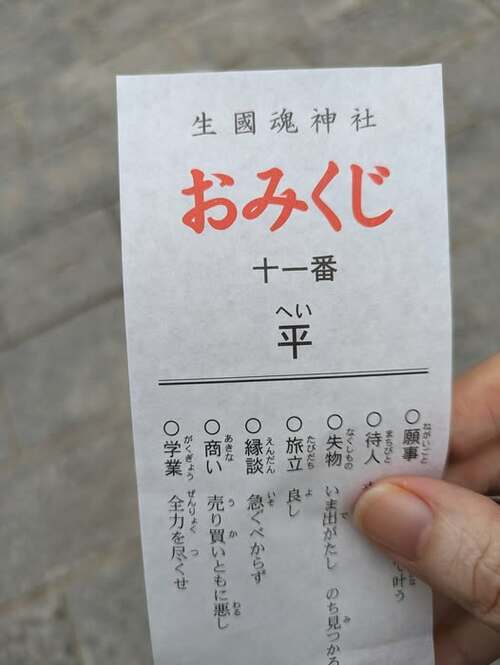 生國魂神社
おみくじ
十一番
へい
平
○願事 心叶う
○待人
○失物 いま出がたし のち見つかる
○旅立 良し
○縁談 急ぐべからず
○商い 売り買いともに悪し
○学業 全力を尽くせ